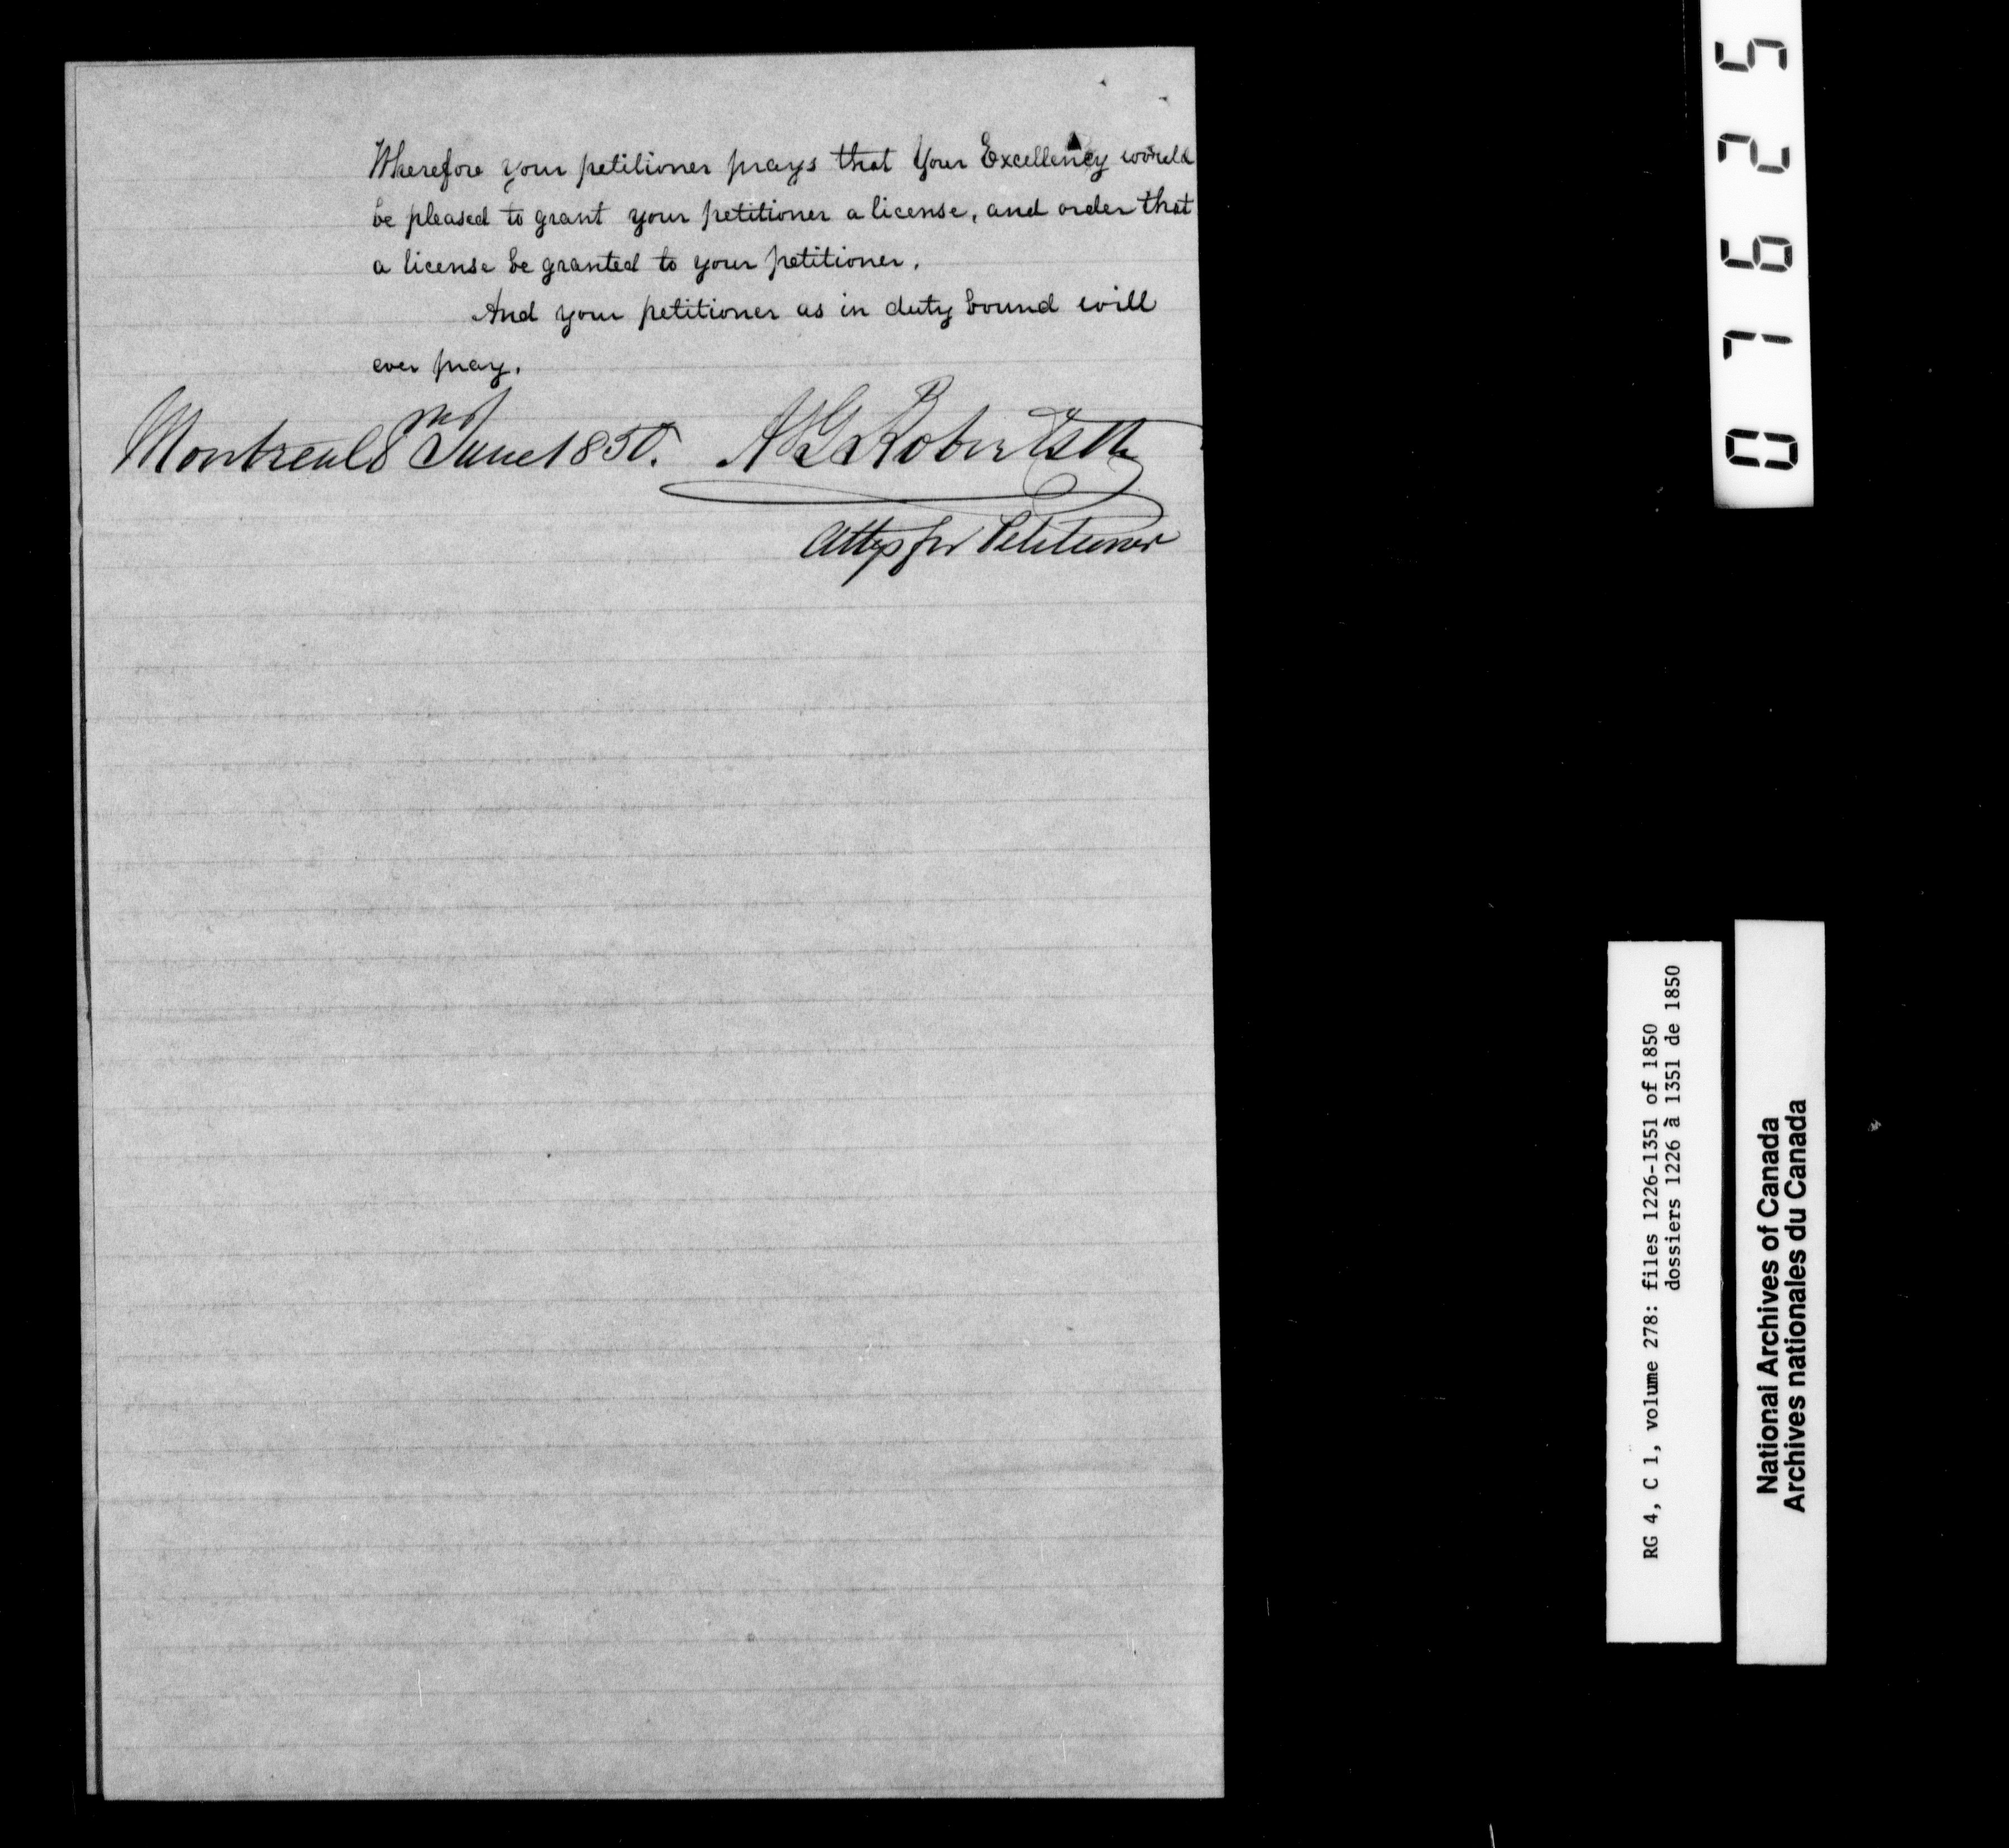 Wherefore your petitioner prays that Your Excellency would
be pleased to grant your petitioner a license, and order that
a license be granted to your petitioner.
And your petitioner as in duty bound will
ever pray.
Montreal 8th June 1850. A G Robertson
Atty for Petitioner
07625
RG 4, C 1, volume 278: files 1226-1351 of 1850
dossiers 1226 à 1351 de 1850
National Archives of Canada
Archives nationales du Canada